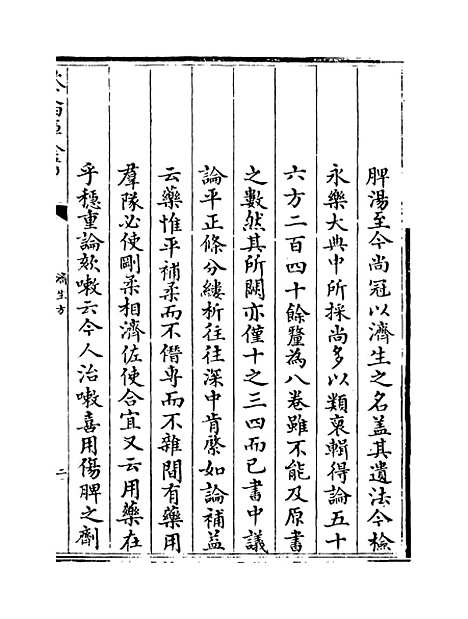 脾湯至今尚冠以濟生之名盖其遺法今檢
永樂大典中所採尚多以類裒輯得論五十
六方二百四十餘釐為八卷雖不能及原書
之數然其所闕亦僅十之三四而已書中議
論平正條分縷析往往深中肯綮如論補益
云藥惟平補柔而不僭專而不雜間有藥用
羣隊必使剛柔相濟佐使合宜又云用藥在
乎穩重論欬嗽云今人治嗽喜用傷脾之劑
濟生方
二